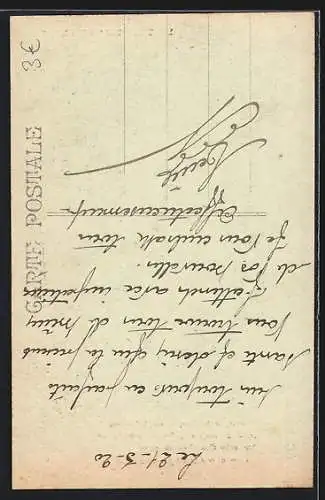 CARTE POSTALE
3€
Le 21-5-20
suis toujours en parfaite
santé et désire que la présente
vous trouve tous de même
J'attends avec impatience
de vos nouvelles.
Je vous embrasse tous
Affectueusement